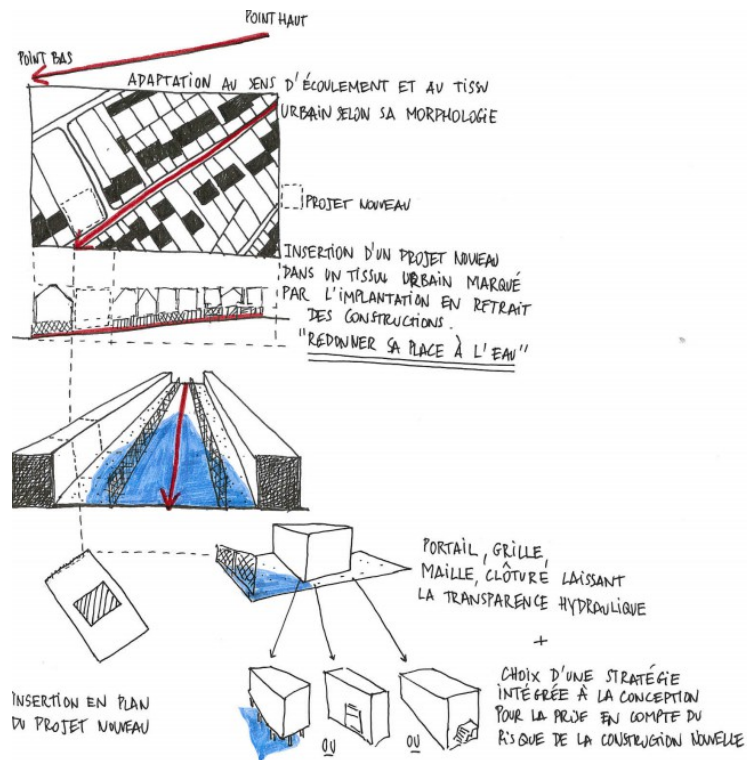 POINT HAUT
POINT BAS
ADAPTATION AU SENS D'ÉCOULEMENT ET AU TISSU
URBAIN SELON SA MORPHOLOGIE
PROJET NOUVEAU
INSERTION D'UN PROJET NOUVEAU
DANS UN TISSU URBAIN MARQUÉ
PAR L'IMPLANTATION EN RETRAIT
DES CONSTRUCTIONS.
"REDONNER SA PLACE À L'EAU"
PORTAIL, GRILLE,
MAILLE, CLÔTURE LAISSANT
LA TRANSPARENCE HYDRAULIQUE
+
CHOIX D'UNE STRATÉGIE
INTÉGRÉE À LA CONCEPTION
POUR LA PRISE EN COMPTE DU
RISQUE DE LA CONSTRUCTION NOUVELLE
INSERTION EN PLAN
DU PROJET NOUVEAU
OU
OU